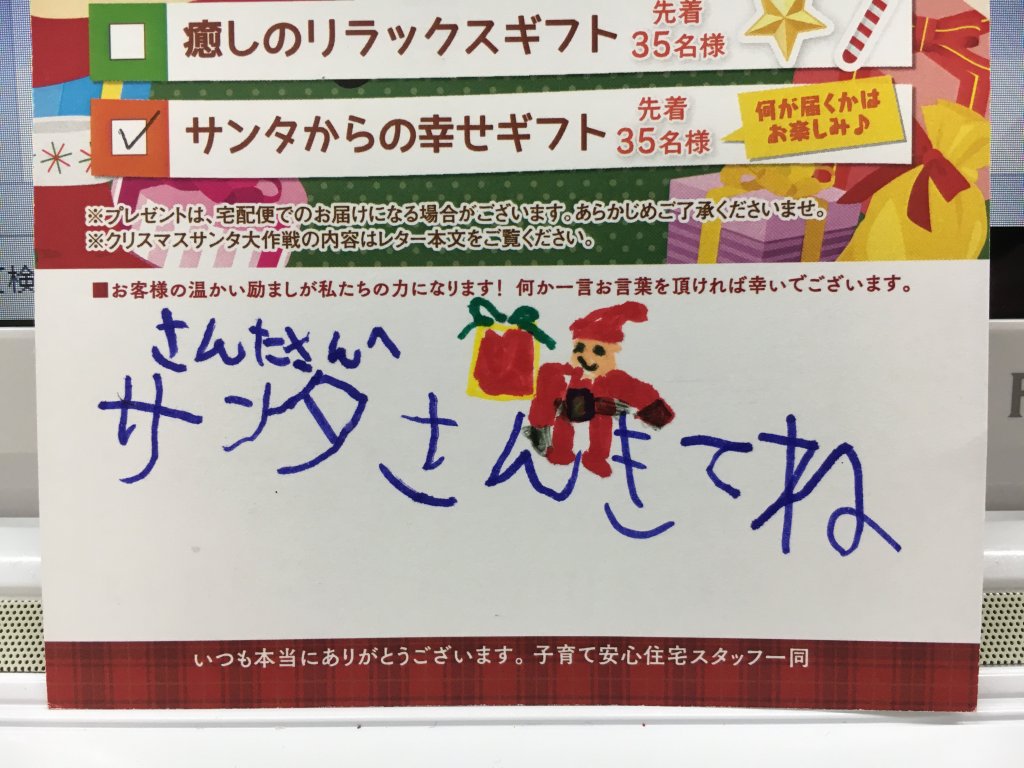 癒しのリラックスギフト 先着35名様
サンタからの幸せギフト 先着35名様
何が届くかは
お楽しみ♪
※プレゼントは、宅配便でのお届けになる場合がございます。あらかじめご了承くださいませ。
※クリスマスサンタ大作戦の内容はレター本文をご覧ください。
■お客様の温かい励ましが私たちの力になります! 何か一言お言葉を頂ければ幸いでございます。
さんたさんへ
サンタさんきてね
いつも本当にありがとうございます。子育て安心住宅スタッフ一同
検